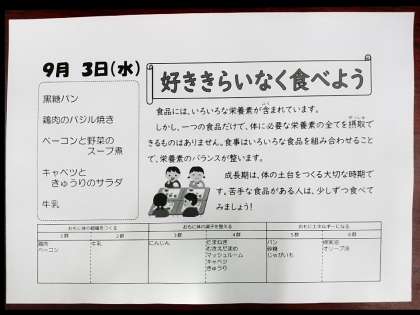 9月 3日(水)
好ききらいなく食べよう
黒糖パン
鶏肉のバジル焼き
ベーコンと野菜の
スープ煮
キャベツと
きゅうりのサラダ
牛乳
食品には、いろいろな栄養素が含まれています。
しかし、一つの食品だけで、体に必要な栄養素の全てを摂取で
きるものはありません。食事はいろいろな食品を組み合わせること
で、栄養素のバランスが整います。
成長期は、体の土台をつくる大切な時期で
す。苦手な食品がある人は、少しずつ食べて
みましょう!
おもに体の組織をつくる
おもに体の調子を整える
おもにエネルギーになる
1群 2群 3群 4群 5群 6群
鶏肉 牛乳 にんじん たまねぎ パン
ベーコン むきえだまめ 砂糖 オリーブ油
マッシュルーム じゃがいも
キャベツ
きゅうり